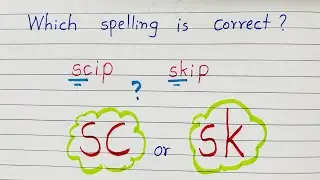 Which spelling is correct?
scip skip
?
sc or sk